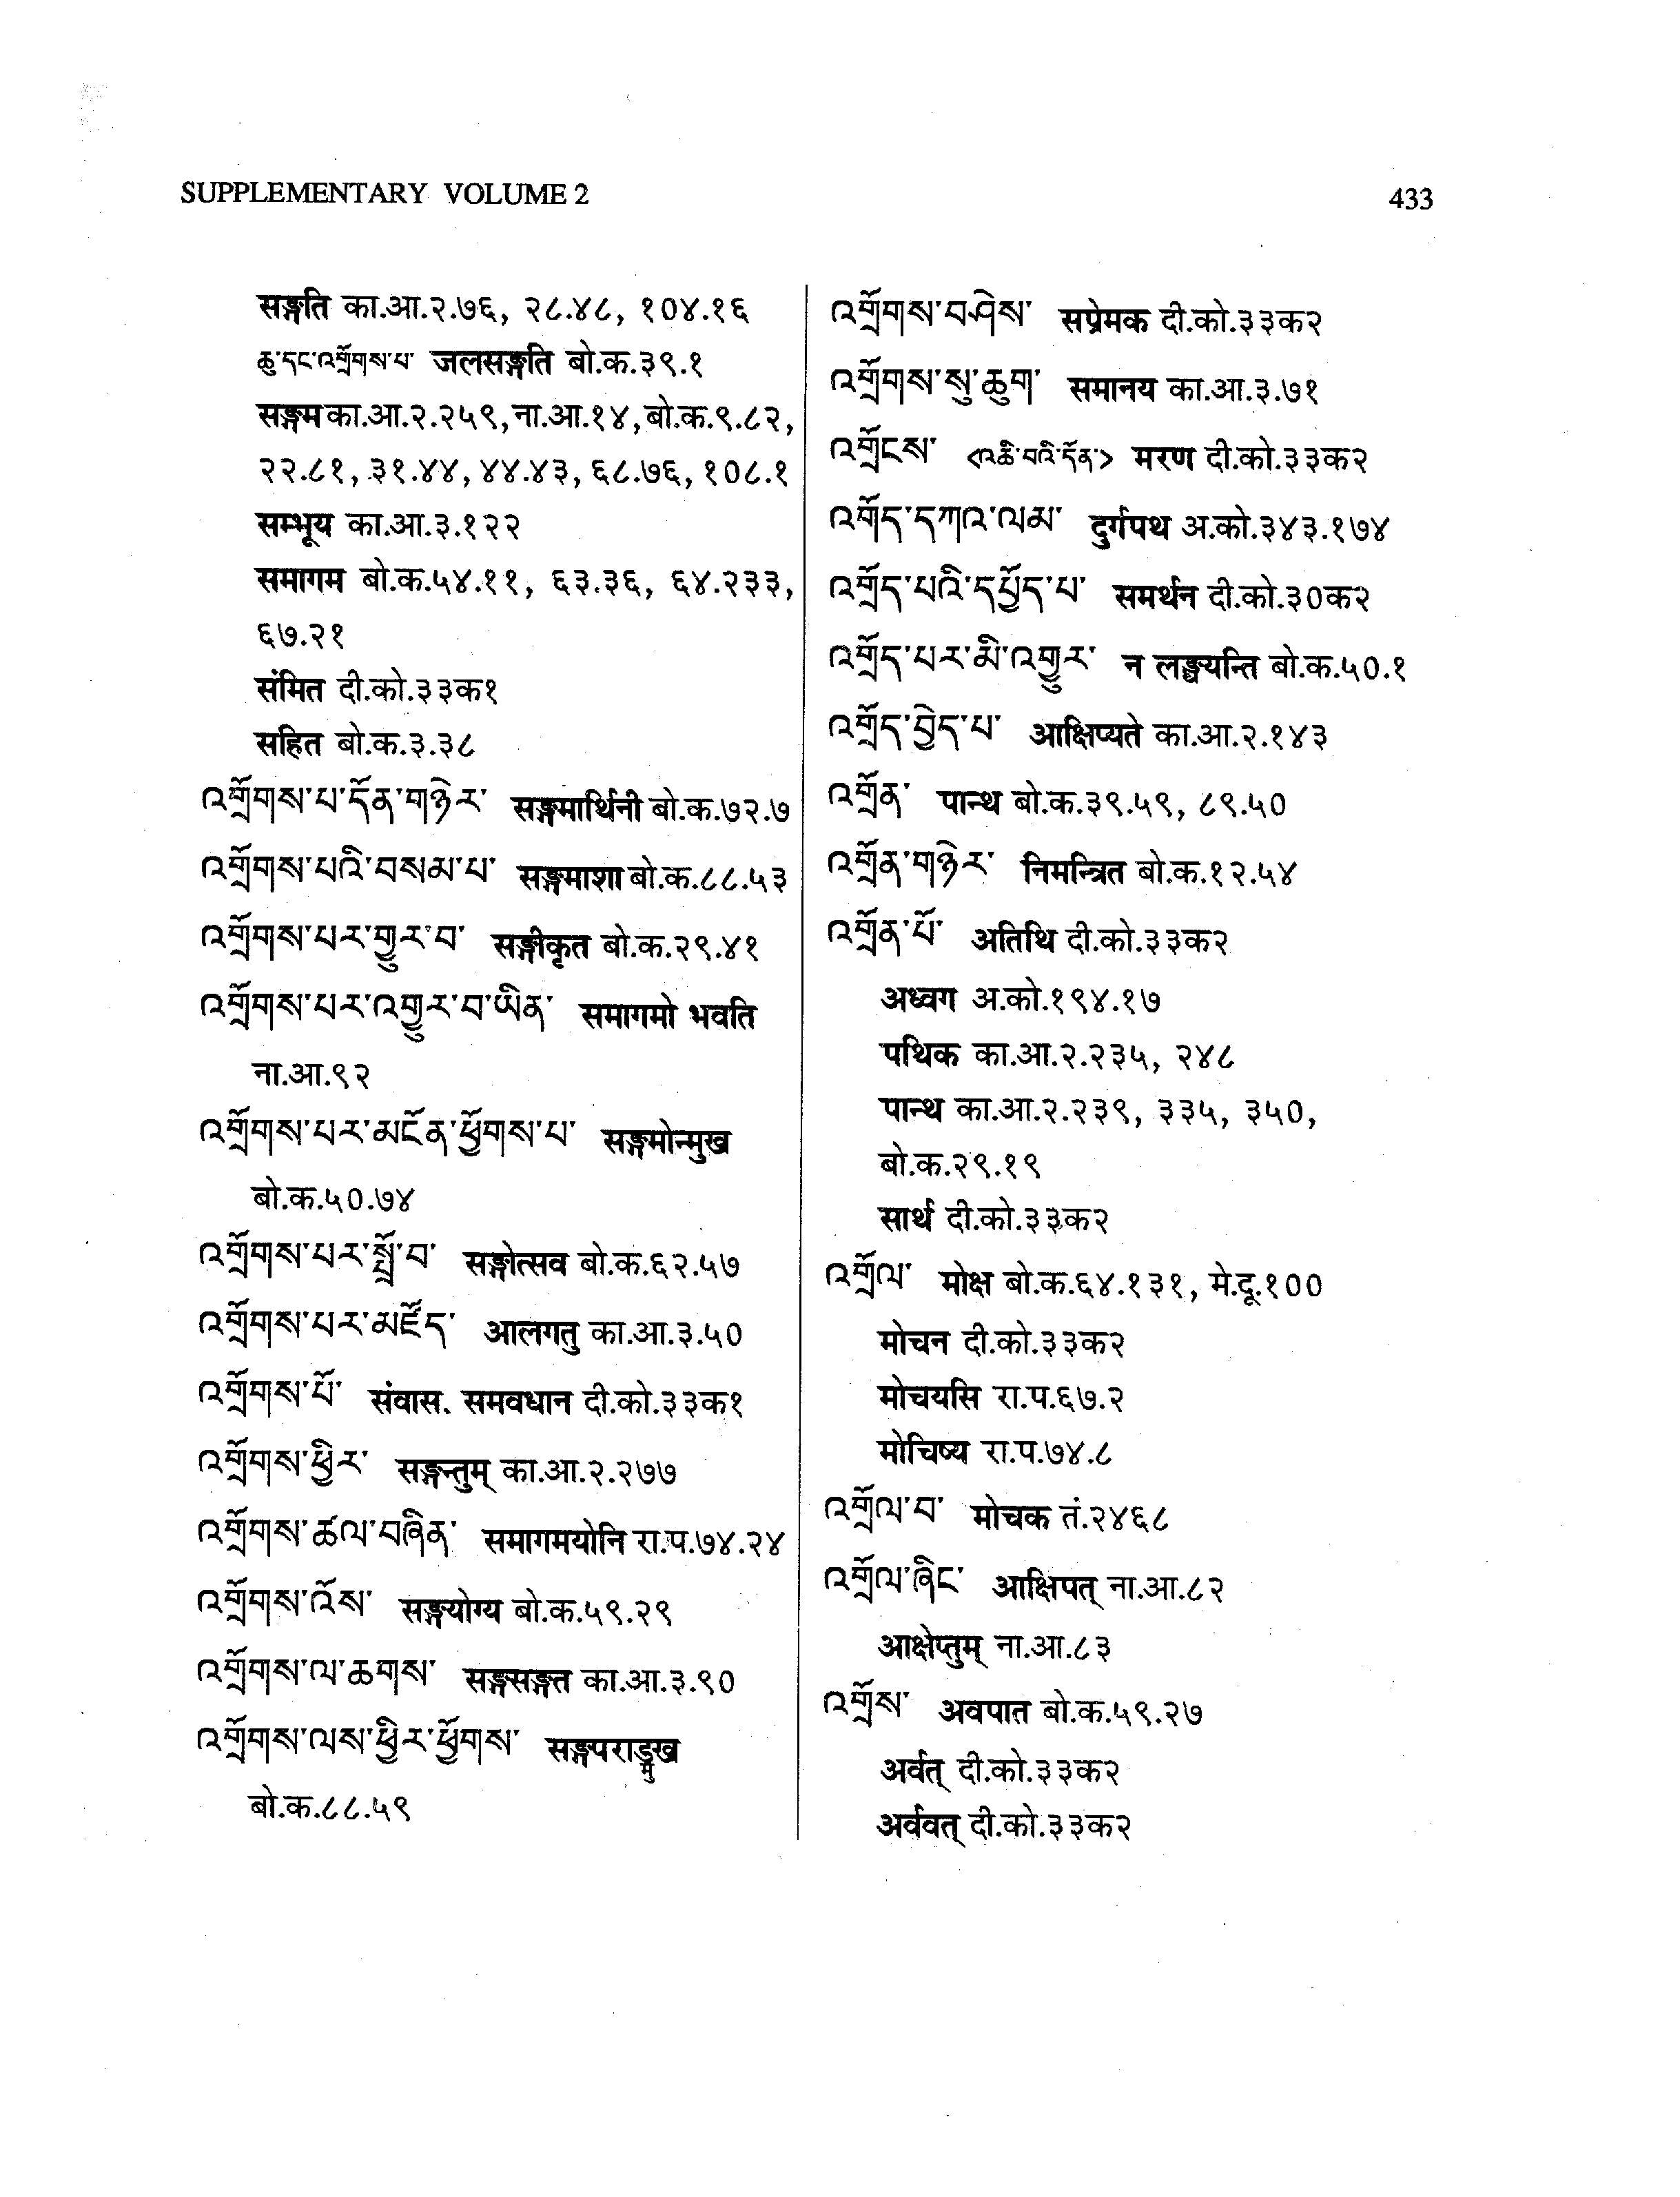 SUPPLEMENTARY VOLUME 2
433
सङ्गति का.आ.२.७६, २८.४८, १०४.१६
ཆུ་དང་འགྲོགས་པ་ जलसङ्गति बो.क.३९.१
सङ्गम का.आ.२.२५९, ना.आ.१४, बो.क.९.८२,
२२.८१, ३१.४४, ४४.४३, ६८.७६, १०८.१
सम्भूय का.आ.३.१२२
समागम बो.क.५४.११, ६३.३६, ६४.२३३,
६७.२१
संमित दी.को.३३क१
सहित बो.क.३.३८
འགྲོགས་པ་དོན་གཉེར་ सङ्गमार्थिनी बो.क.७२.७
འགྲོགས་པའི་བསམ་པ་ सङ्गमाशा बो.क.८८.५३
འགྲོགས་པར་གྱུར་བ་ सङ्गीकृत बो.क.२९.४१
འགྲོགས་པར་འགྱུར་བ་ཡིན་ समागमो भवति
ना.आ.९२
འགྲོགས་པར་མངོན་ཕྱོགས་པ་ सङ्गमोन्मुख
बो.क.५०.७४
འགྲོགས་པར་སྤྲོ་བ་ सङ्गोत्सव बो.क.६२.५७
འགྲོགས་པར་མཛོད་ आलगतु का.आ.३.५०
འགྲོགས་པོ་ संवास. समवधान दी.को.३३क१
འགྲོགས་ཕྱིར་ सङ्गन्तुम् का.आ.२.२७७
འགྲོགས་ཚལ་བཞིན་ समागमयोनि रा.प.७४.२४
འགྲོགས་འོས་ सङ्गयोग्य बो.क.५९.२९
འགྲོགས་ལ་ཆགས་ सङ्गसङ्गत का.आ.३.९०
འགྲོགས་ལས་ཕྱིར་ཕྱོགས་ सङ्गपराङ्मुख
बो.क.८८.५९
འགྲོགས་བཤེས་ सप्रेमक दी.को.३३क२
འགྲོགས་སུ་ཆུག་ समानय का.आ.३.७१
འགྲོངས་ <འཆི་བའི་དོན་> मरण दी.को.३३क२
འགོད་དཀའ་ལམ་ दुर्गपथ अ.को.३४३.१७४
འགྲོད་པའི་དཔྱོད་པ་ समर्थन दी.को.३०क२
འགྲོད་པར་མི་འགྱུར་ न लङ्घयन्ति बो.क.५०.१
འགྲོད་བྱེད་པ་ आक्षिप्यते का.आ.२.१४३
འགྲོན་ पान्थ बो.क.३९.५९, ८९.५०
འགྲོན་གཉེར་ निमन्त्रित बो.क.१२.५४
འགྲོན་པོ་ अतिथि दी.को.३३क२
अध्वग अ.को.१९४.१७
पथिक का.आ.२.२३५, २४८
पान्थ का.आ.२.२३९, ३३५, ३५०,
बो.क.२९.१९
सार्थ दी.को.३३क२
འགྲོལ་ मोक्ष बो.क.६४.१३१, मे.दू.१००
मोचन दी.को.३३क२
मोचयसि रा.प.६७.२
मोचिष्य रा.प.७४.८
འགྲོལ་བ་ मोचक तं.२४६८
འགྲོལ་ཞིང་ आक्षिपत् ना.आ.८२
आक्षेप्तुम् ना.आ.८३
འགྲོས་ अवपात बो.क.५९.२७
अर्वत् दी.को.३३क२
अर्ववत् दी.को.३३क२